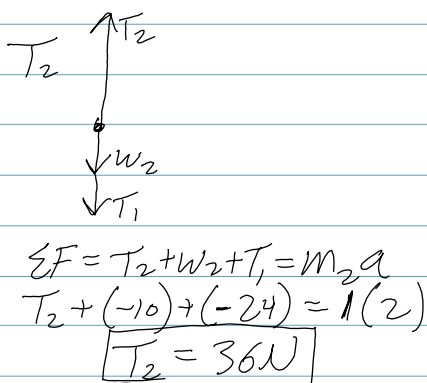 T₂
T₂
W₂
T₁
ΣF = T₂+W₂+T₁ = m₂a
T₂ + (-10) + (-24) = 1(2)
T₂ = 36N